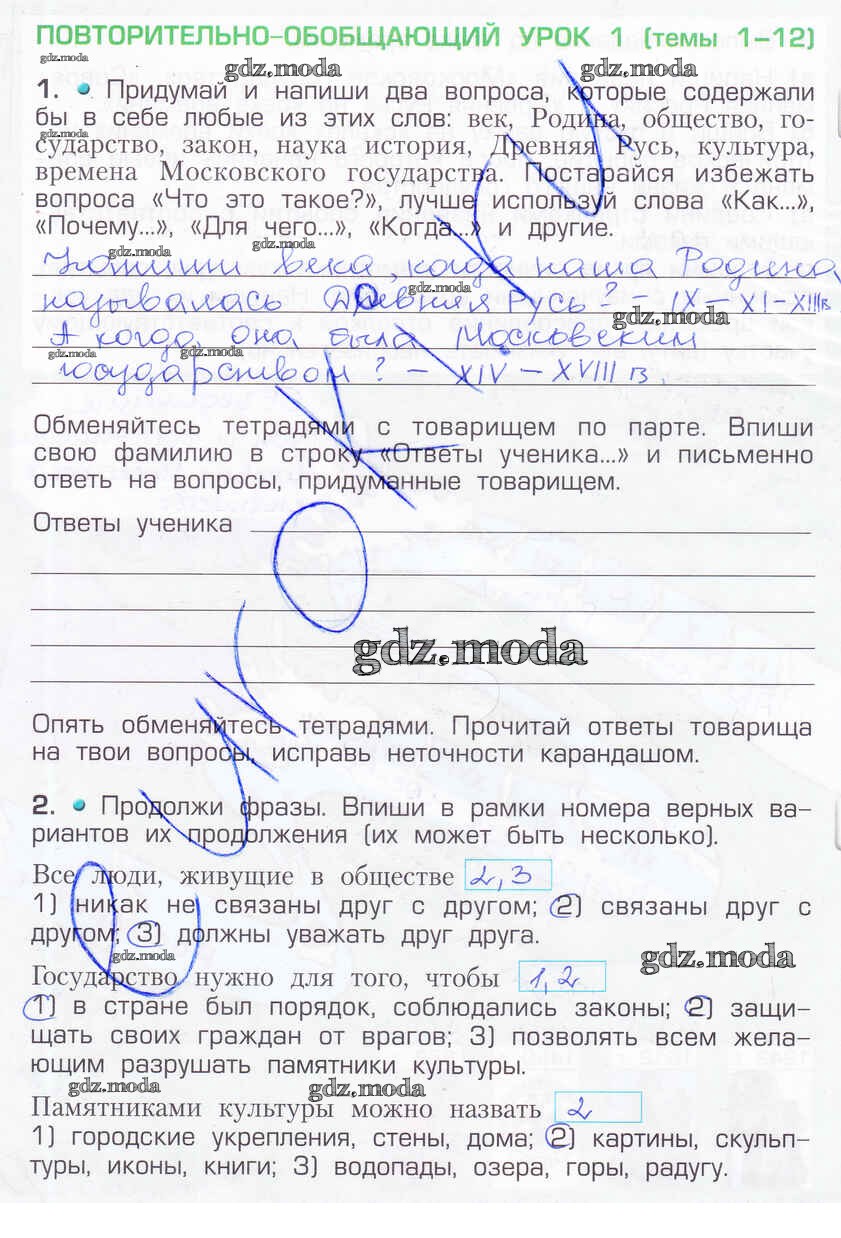 ПОВТОРИТЕЛЬНО-ОБОБЩАЮЩИЙ УРОК 1 (темы 1–12)
gdz.moda gdz.moda gdz.moda
1. • Придумай и напиши два вопроса, которые содержали
бы в себе любые из этих слов: век, Родина, общество, го-
сударство, закон, наука история, Древняя Русь, культура,
времена Московского государства. Постарайся избежать
вопроса «Что это такое?», лучше используй слова «Как...»,
«Почему...», «Для чего...», «Когда...» и другие.
gdz.moda gdz.moda
века, когда наша Родина
gdz.moda
называлась Древняя Русь? – IX – XI-XIII в
gdz.moda gdz.moda
А когда она была Московским
gdz.moda gdz.moda
государством? – XIV – XVIII в.
Обменяйтесь тетрадями с товарищем по парте. Впиши
свою фамилию в строку «Ответы ученика...» и письменно
ответь на вопросы, придуманные товарищем.
Ответы ученика
gdz.moda
Опять обменяйтесь тетрадями. Прочитай ответы товарища
на твои вопросы, исправь неточности карандашом.
2. • Продолжи фразы. Впиши в рамки номера верных ва-
риантов их продолжения (их может быть несколько).
Все люди, живущие в обществе 2,3
1) никак не связаны друг с другом; 2) связаны друг с
другом; 3) должны уважать друг друга.
gdz.moda gdz.moda
Государство нужно для того, чтобы 1,2
1) в стране был порядок, соблюдались законы; 2) защи-
щать своих граждан от врагов; 3) позволять всем жела-
ющим разрушать памятники культуры.
gdz.moda gdz.moda
Памятниками культуры можно назвать 2
1) городские укрепления, стены, дома; 2) картины, скульп-
туры, иконы, книги; 3) водопады, озера, горы, радугу.